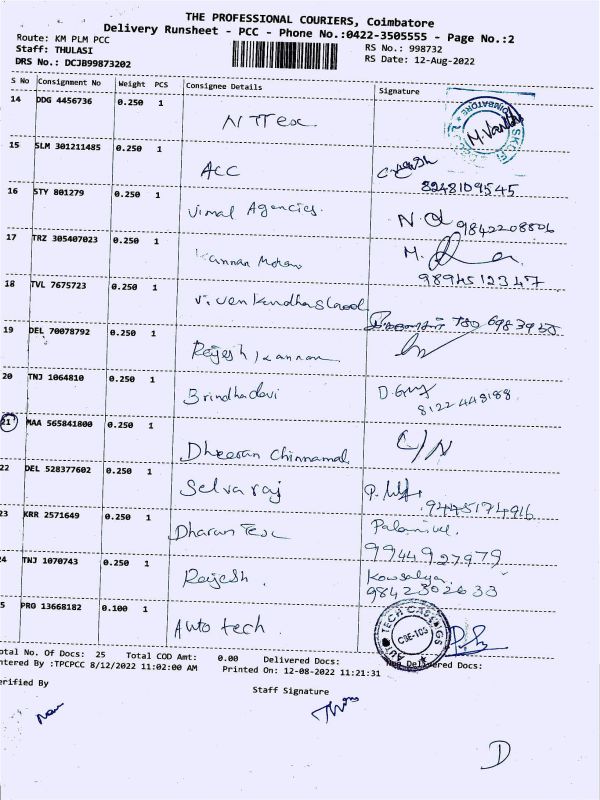 THE PROFESSIONAL COURIERS, Coimbatore
Delivery Runsheet - PCC - Phone No.:0422-3505555 - Page No.:2
Route: KM PLM PCC
RS No.: 998732
Staff: THULASI
RS Date: 12-Aug-2022
DRS No.: DCJB99873202
S No Consignment No Weight PCS Consignee Details Signature
14 DDG 4456736 0.250 1
COIMBATORE
M. Vanitha
15 SLM 301211485 0.250 1
ACC
8248109545
16 STY 801279 0.250 1
Vimal Agencies.
9842208806
17 TRZ 305407023 0.250 1
Kannan
M.
9894512347
18 TVL 7675723 0.250 1
19 DEL 70078792 0.250 1
Rajesh Kannan
20 TNJ 1064810 0.250 1
Brindhadevi
8122448188
21 MAA 565841800 0.250 1
C/N
Dheeran Chinnamal
22 DEL 528377602 0.250 1
Selvaraj
9445174916
23 KRR 2571649 0.250 1
Dharan Tex
9944927979
24 TNJ 1070743 0.250 1
Kowsalya
Rajesh.
9842302633
25 PRO 13668182 0.100 1
Auto tech
AUTO TECH CASTINGS
CBE-105
Total No. Of Docs: 25 Total COD Amt: 0.00 Delivered Docs: Docs:
Entered By :TPCPCC 8/12/2022 11:02:00 AM Printed On: 12-08-2022 11:21:31
Verified By
Staff Signature
D